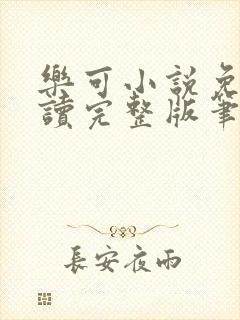 樂可小說免
讀完整版筆
長安夜雨